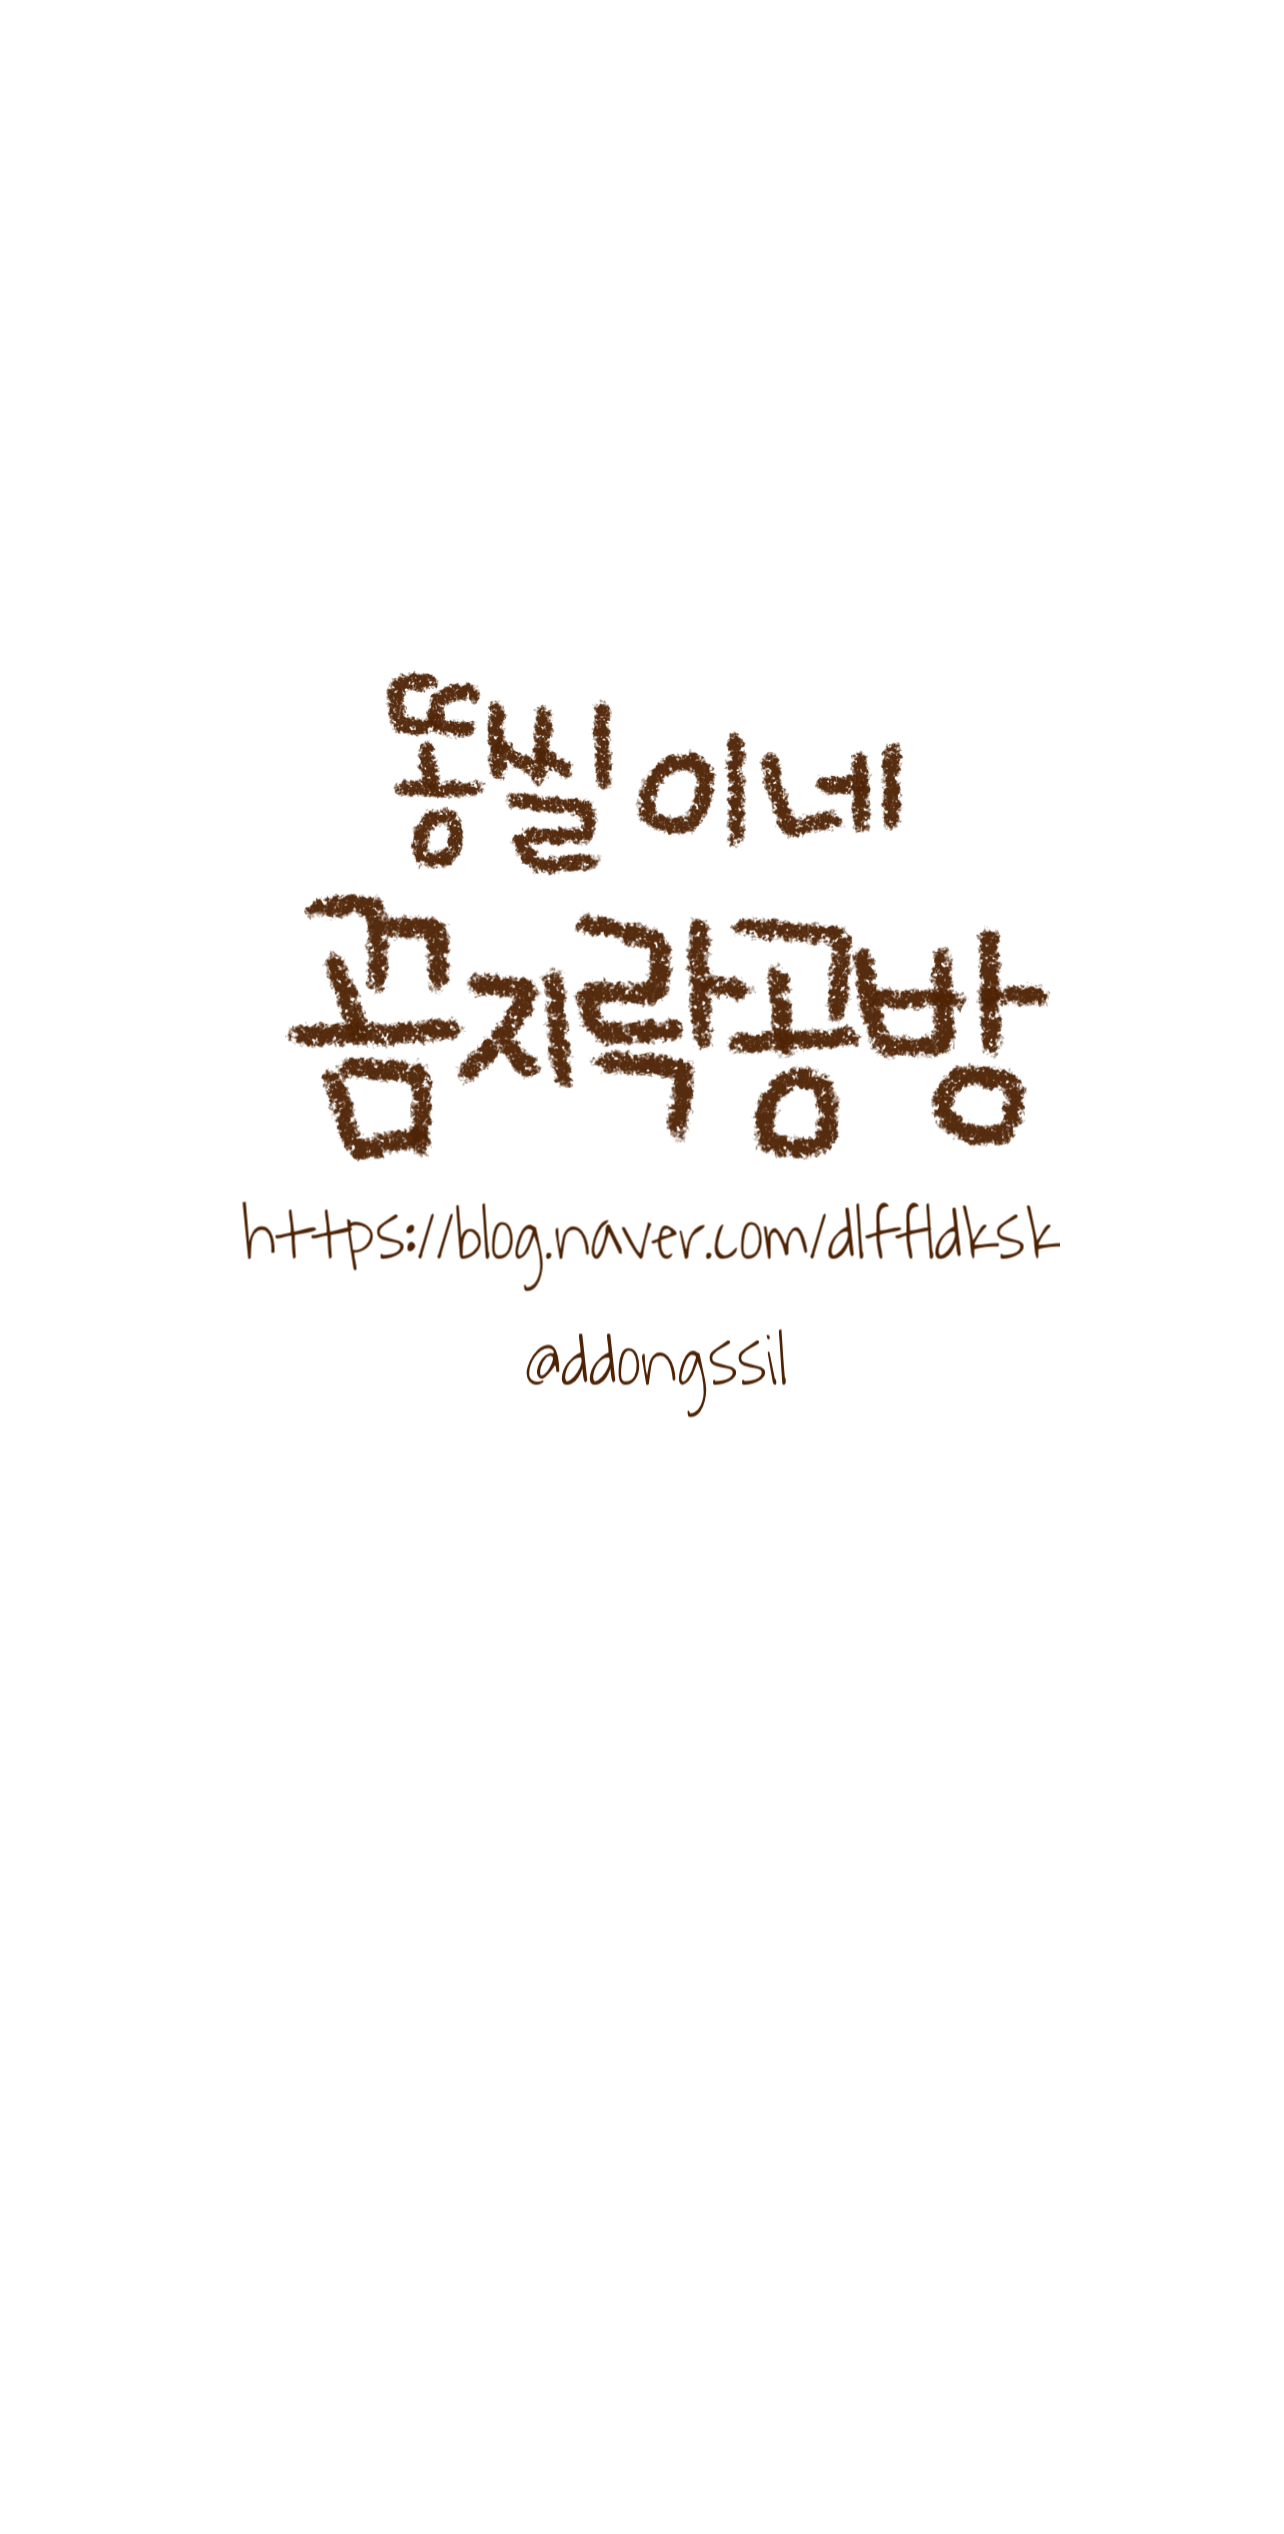 똥씰이네
꼼지락공방
https://blog.naver.com/dlffldksk
@ddongssil